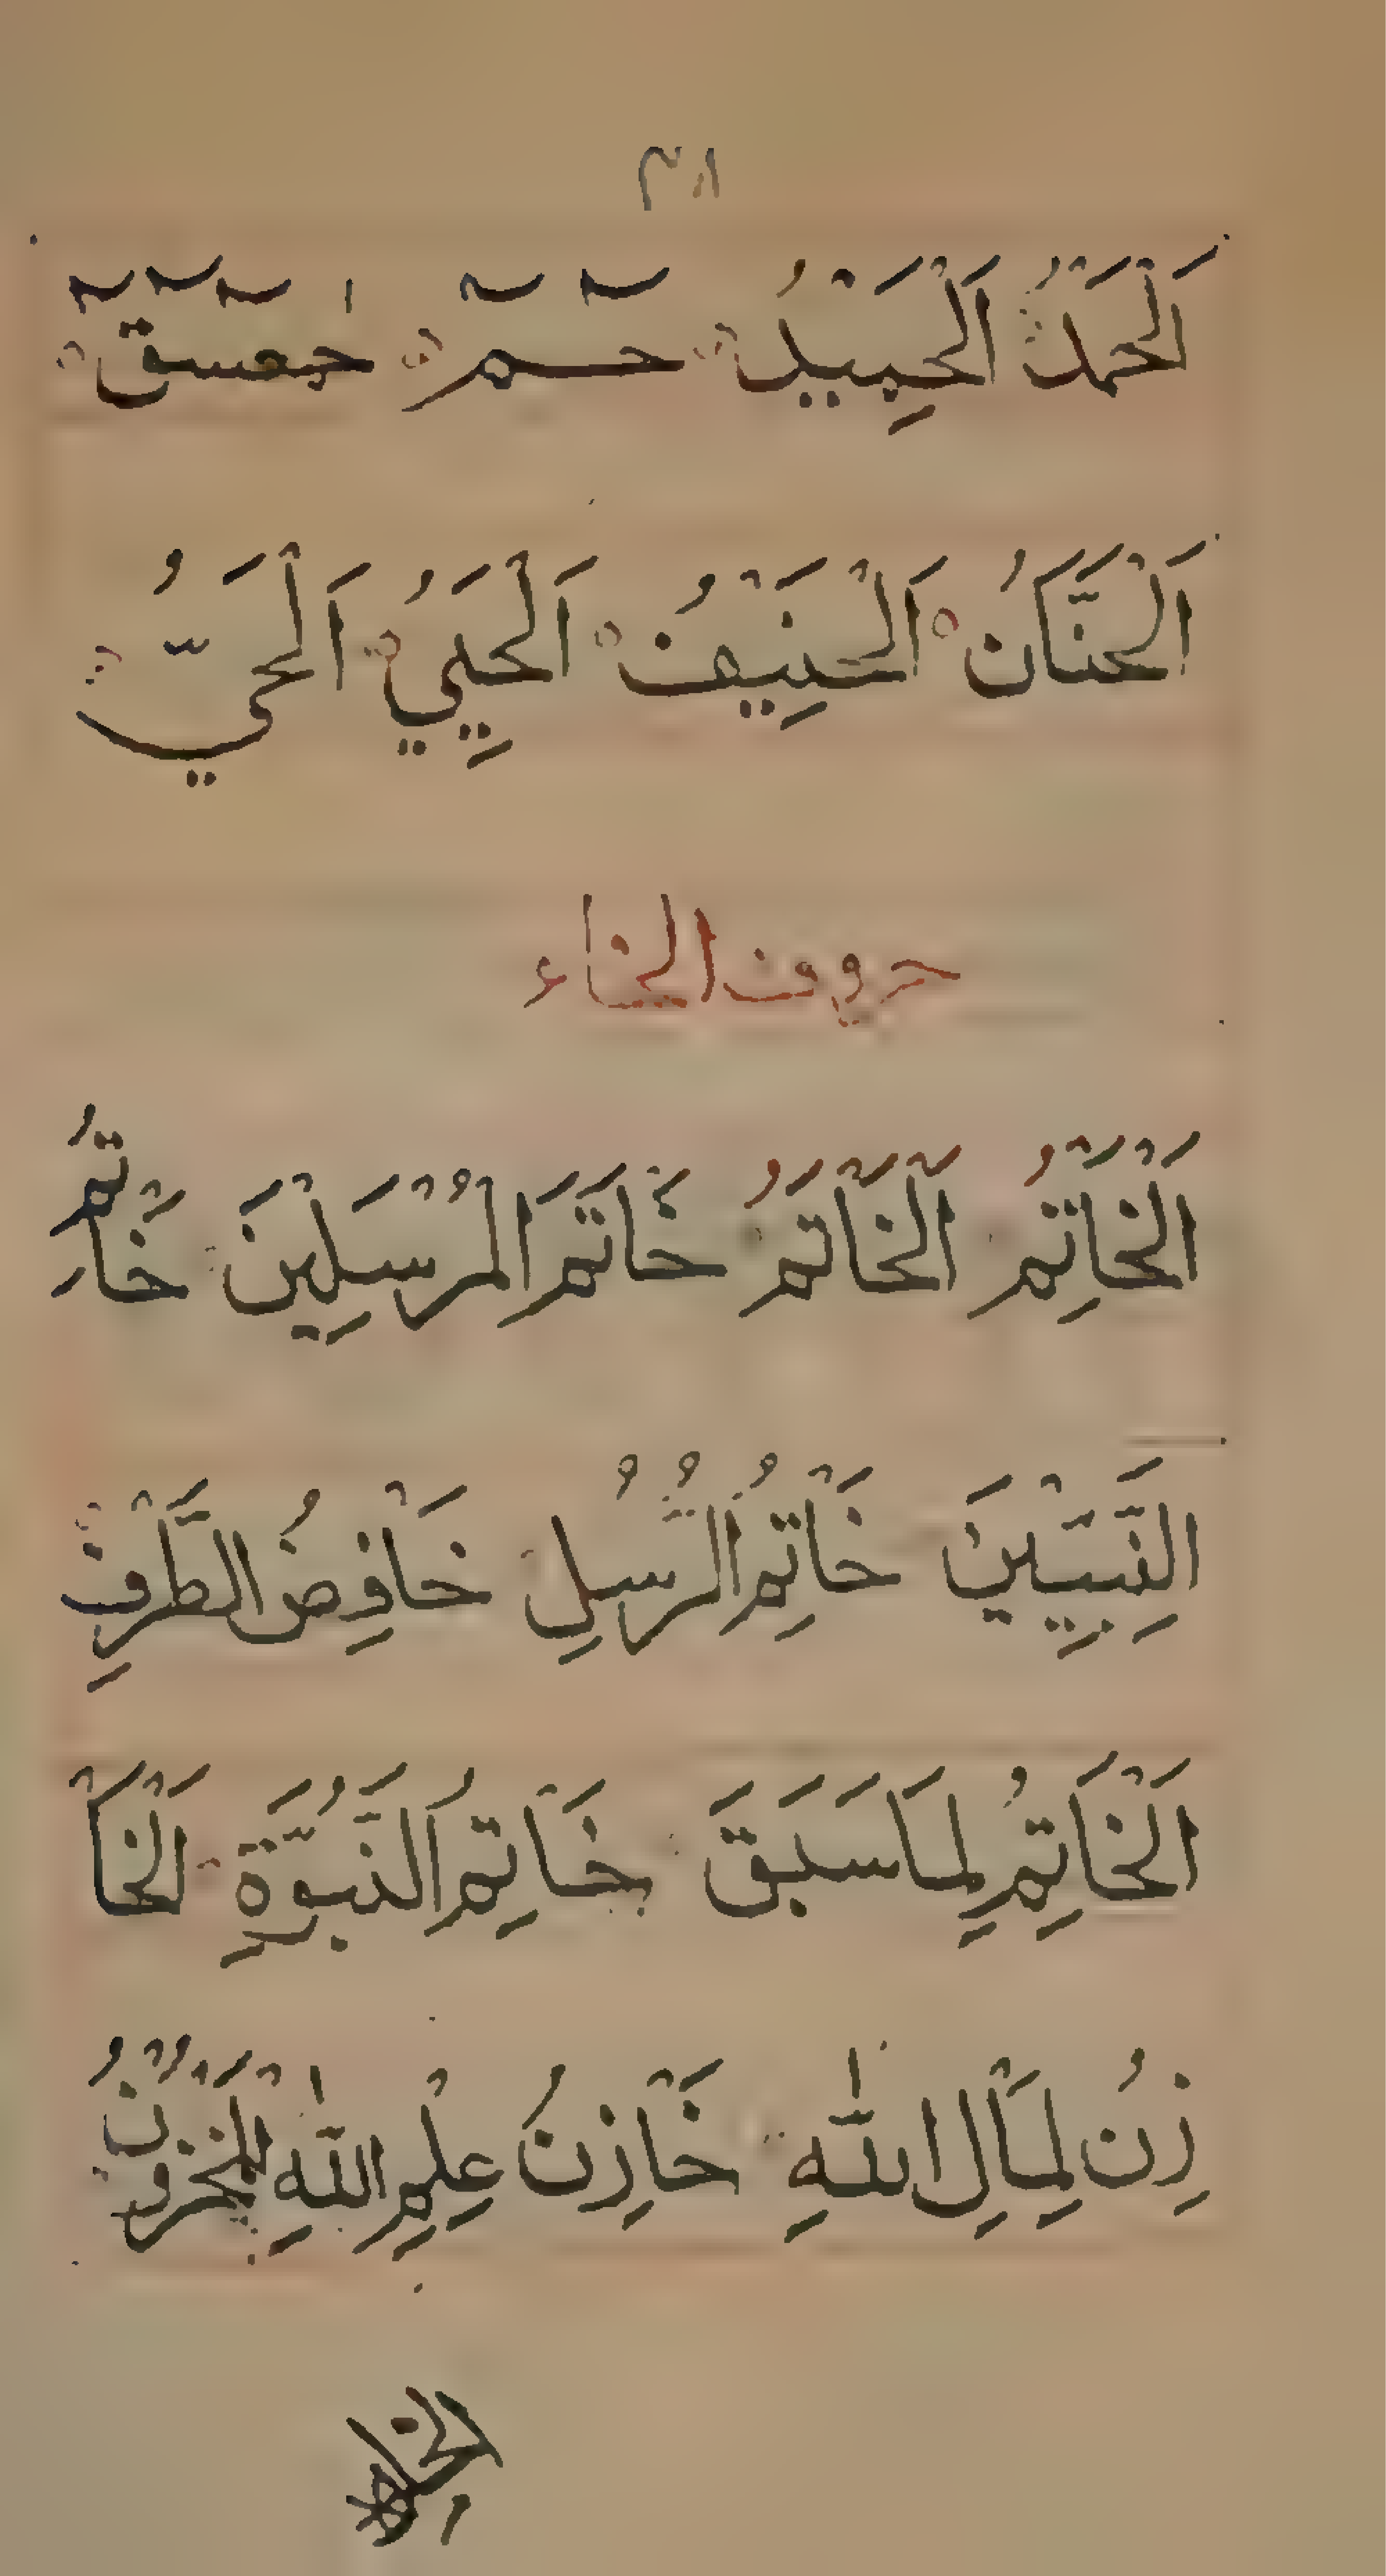 ١٣
اَلْحَمْدُ اَلْحَمِيْدُ حٰمٓ حٰمٓعٓسٓقٓ
اَلْحَنَّانُ اَلْحَنِيْفُ اَلْحَيِيُّ اَلْحَيُّ
حروف الخاء
اَلْخَاتِمُ اَلْخَاتَمُ خَاتَمَ الْمُرْسَلِيْنَ خَاتِمُ
النَّبِيِّيْنَ خَاتِمُ الرُّسُلِ خَافِضُ الطَّرْفِ
اَلْخَاتِمُ لِمَا سَبَقَ خَاتِمُ النَّبُوَّةِ اَلْخَا
زِنُ لِمَالِ اللّٰهِ خَازِنُ عِلْمِ اللّٰهِ الْمَخْزُوْنُ